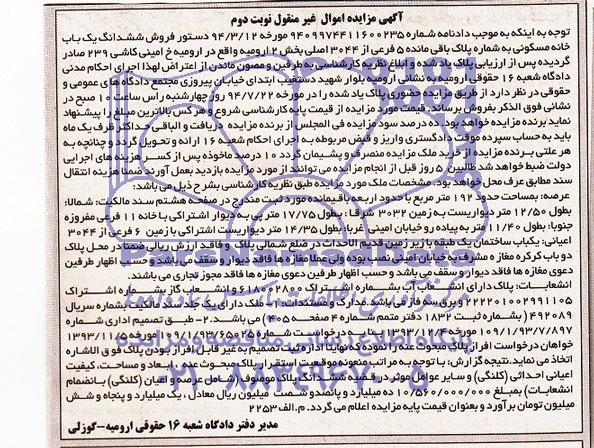 آگهی مزایده اموال غیر منقول نوبت دوم
توجه به اینکه به موجب دادنامه شماره ۹۴۰۹۹۷۴۴۱۱۶۰۰۲۳۵ مورخه ۹۴/۳/۱۲ دستور فروش ششدانگ یک باب
خانه مسکونی به شماره پلاک باقی مانده ۵ فرعی از ۳۰۴۴ اصلی بخش ۲ ارومیه واقع در ارومیه خ امینی کاشی ۲۳۹ صادر
گردیده پس از ارزیابی پلاک یاد شده و ابلاغ نظریه کارشناسی به طرفین و مصون ماندن از اعتراض لهذا اجرای احکام مدنی
دادگاه شعبه ۱۶ حقوقی ارومیه به نشانی ارومیه بلوار شهید دستغیب ابتدای خیابان پیروزی مجتمع دادگاه های عمومی و
حقوقی در نظر دارد از طریق مزایده حضوری پلاک یاد شده را در مورخه ۹۴/۷/۲۲ روز چهارشنبه راس ساعت ۱۰ صبح در
نشانی فوق الذکر بفروش برساند. قیمت مورد مزایده از قیمت پایه کارشناسی شروع و هر کس بالاترین مبلغ را پیشنهاد
نماید برنده مزایده خواهد بود. ده درصد سود مزایده فی المجلس از برنده مزایده دریافت و الباقی حداکثر ظرف یک ماه
باید به حساب سپرده موقت دادگستری واریز و فیش مربوطه به اجرای احکام شعبه ۱۶ ارائه و تحویل گردد و چنانچه به
هر علتی برنده مزایده از خرید ملک مزایده منصرف و پشیمان گردد ۱۰ درصد ماخوذه پس از کسر هزینه های اجرایی
دولت ضبط خواهد شد. طالبین ۵ روز قبل از انجام مزایده می توانند از مورد مزایده بازدید بعمل آورند ضمنا هزینه انتقال
سند مطابق عرف محل خواهد بود. مشخصات ملک مورد مزایده طبق نظریه کارشناسی بشرح ذیل می باشد:
عرصه: بمساحت حدود ۱۹۲ متر مربع با حدود اربعه باقیمانده مورد ثبت مندرج در صفحه هشتم سند مالکیت: شمالا:
بطول ۱۲/۵۰ متر دیواریست به زمین ۳۰۳۲ شرقا: بطول ۱۷/۷۵ متر پی به دیوار اشتراکی با خانه ۱۱ فرعی مفروزه
جنوبا: بطول ۱۱/۴۰ متر به پیاده رو خیابان امینی غربا بطول ۱۴/۳۵ متر دیواریست اشتراکی با زمین ۶ فرعی از ۳۰۴۴
اعیانی: یکباب ساختمان یک طبقه با زیر زمین قدیم الاحداث در ضلع شمالی پلاک و فاقد ارزش ریالی ضمنا در محل پلاک
دو باب کرکره مغازه مشرف به خیابان امینی نصب بوده ولی عملا مغازه ها فاقد دیوار و سقف می باشد و حسب اظهار طرفین
دعوی مغازه ها فاقد دیوار و سقف می باشد و حسب اظهار طرفین دعوی مغازه ها فاقد مجوز تجاری می باشند.
انشعابات: پلاک دارای انشعاب آب بشماره اشتراک ۶۱۸۰۶۲۸۰۰ و انشعاب گاز بشماره اشتراک
۲۲۲۲۰۱۰۰۲۹۹۱۱۰۵ و برق سه فاز می باشد. مدارک و مستندات: ۱- ملک دارای یک جلد سند مالکیت بشماره سریال
۴۹۲۰۸۹ ( بشماره ثبت ۱۸۳۲ دفتر متمم شماره ۴ صفحه ۴۰۵) می باشد. ۲- طبق تصمیم اداری شماره
۱۰۹/۱/۹۳/۷/۸۹۷ مورخه ۱۳۹۳/۱۲/۴ بنا به درخواست شماره ۱۰۹/۱/۹۳/۶۵۲۵ مورخه ۱۳۹۳/۱۱/۵
خواهان درخواست افراز پلاک مبحوث عنه را نموده که نهایتا اداره ثبت تصمیم به غیر قابل افراز بودن پلاک فوق الاشاره
اتخاذ می نماید. نتیجه گزارش: با توجه به مراتب معنونه موقعیت استقرار پلاک مبحوث عنه و ابعاد و مساحت، کیفیت
اعیانی احداثی (کلنگی) و سایر عوامل موثر در قضیه ششدانگ پلاک موضوع شامل عرصه و اعیان (کلنگی) با انضمام
انشعابات) بمبلغ ۱۰/۵۶۰/۰۰۰/۰۰۰ ده میلیارد و پانصد و شصت میلیون ریال معادل، یک میلیارد و پنجاه و شش
میلیون تومان برآورد و بعنوان قیمت پایه مزایده اعلام می گردد. م.الف ۲۲۵۳
مدیر دفتر دادگاه شعبه ۱۶ حقوقی ارومیه-گوزلی